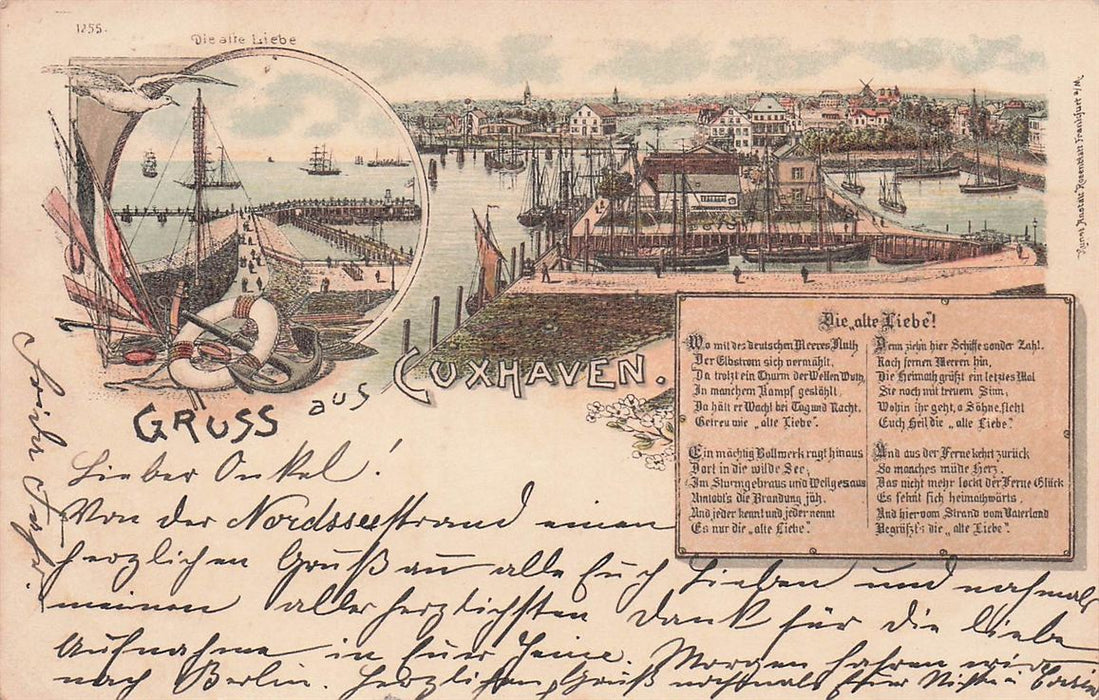 1255.
Die alte Liebe
Kunst Anstalt Rosenblatt Frankfurt a/M.
GRUSS aus CUXHAVEN.
Die „alte Liebe“!
Wo mit des deutschen Meeres Fluth
Der Elbstrom sich vermählt,
Da trotzt ein Thurm der Wellen Wuth,
In manchem Kampf gestählt,
Da hält er Wacht bei Tag und Nacht,
Getreu wie „alte Liebe“.
Ein mächtig Bollwerk ragt hinaus
Dort in die wilde See,
Im Sturmgebraus und Wellgesaus
Umtobt's die Brandung jäh.
Und jeder kennt und jeder nennt
Es nur die „alte Liebe“.
Denn ziehn hier Schiffe sonder Zahl.
Nach fernen Meeren hin,
Die Heimath grüßt ein letztes Mal
Sie noch mit treuem Sinn;
Wohin ihr geht, o Söhne, fleht
Euch Heil die „alte Liebe“.
Und aus der Ferne kehrt zurück
So manches müde Herz,
Das nicht mehr lockt der Ferne Glück
Es sehnt sich heimathwärts,
Und hier vom Strand vom Vaterland
Begrüßt's die „alte Liebe“.
Lieber Onkel!
Von der Nordseestrand einen
herzlichen Gruß an alle Euch Lieben und nochmals
meinen allerherzlichsten Dank für die liebe
Aufnahme in Euer Heime. Morgen fahren wir
nach Berlin. Herzlichen Gruß nochmals Eure Nichte